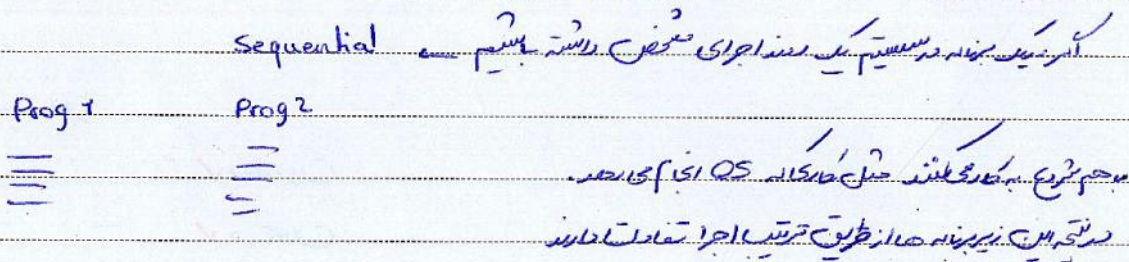 اگر یک برنامه در سیستم یک روند اجرای مشخص داشته باشیم ← Sequential
Prog 1 Prog 2
با هم شروع به کار می‌کنند مثل کاری که OS انجام می‌دهد.
در نتیجه این زیربرنامه ها از طریق ترتیب اجرا تفاوت دارند